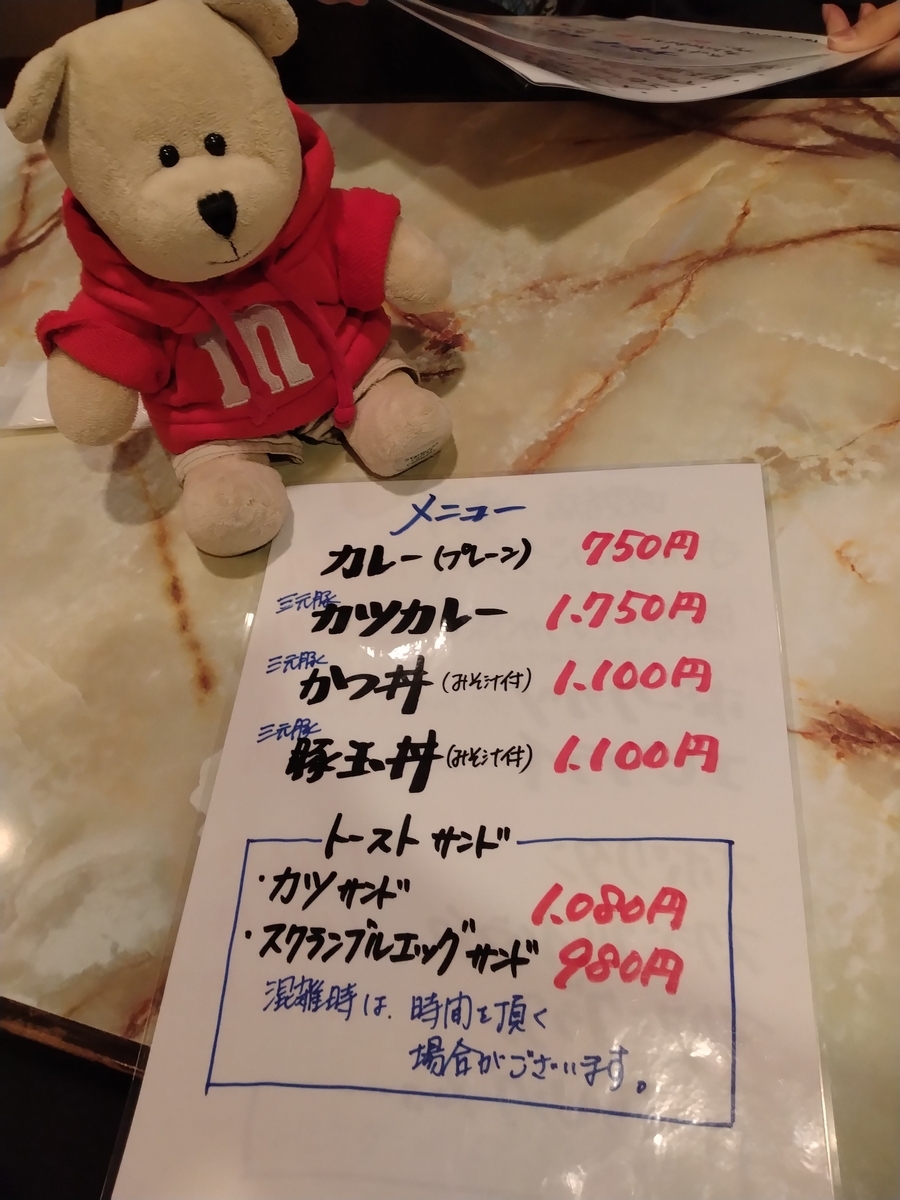 10
メニュー
カレー(プレーン) 750円
三元豚 カツカレー 1.750円
三元豚 かつ丼(みそ汁付) 1.100円
三元豚 豚玉丼(みそ汁付) 1.100円
トースト サンド
・カツ サンド 1.080円
・スクランブルエッグ サンド 980円
混雑時は、時間を頂く
場合がございます。